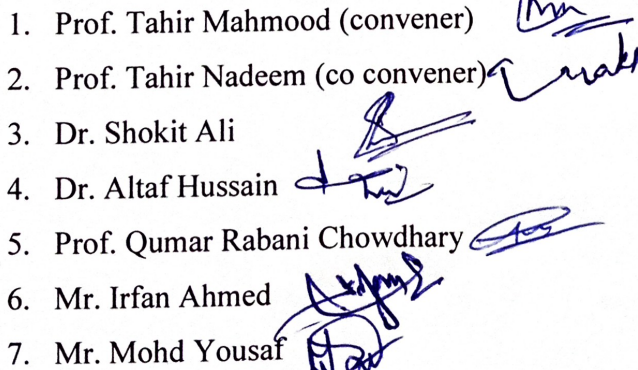 1. Prof. Tahir Mahmood (convener)
2. Prof. Tahir Nadeem (co convener)
3. Dr. Shokit Ali
4. Dr. Altaf Hussain
5. Prof. Qumar Rabani Chowdhary
6. Mr. Irfan Ahmed
7. Mr. Mohd Yousaf